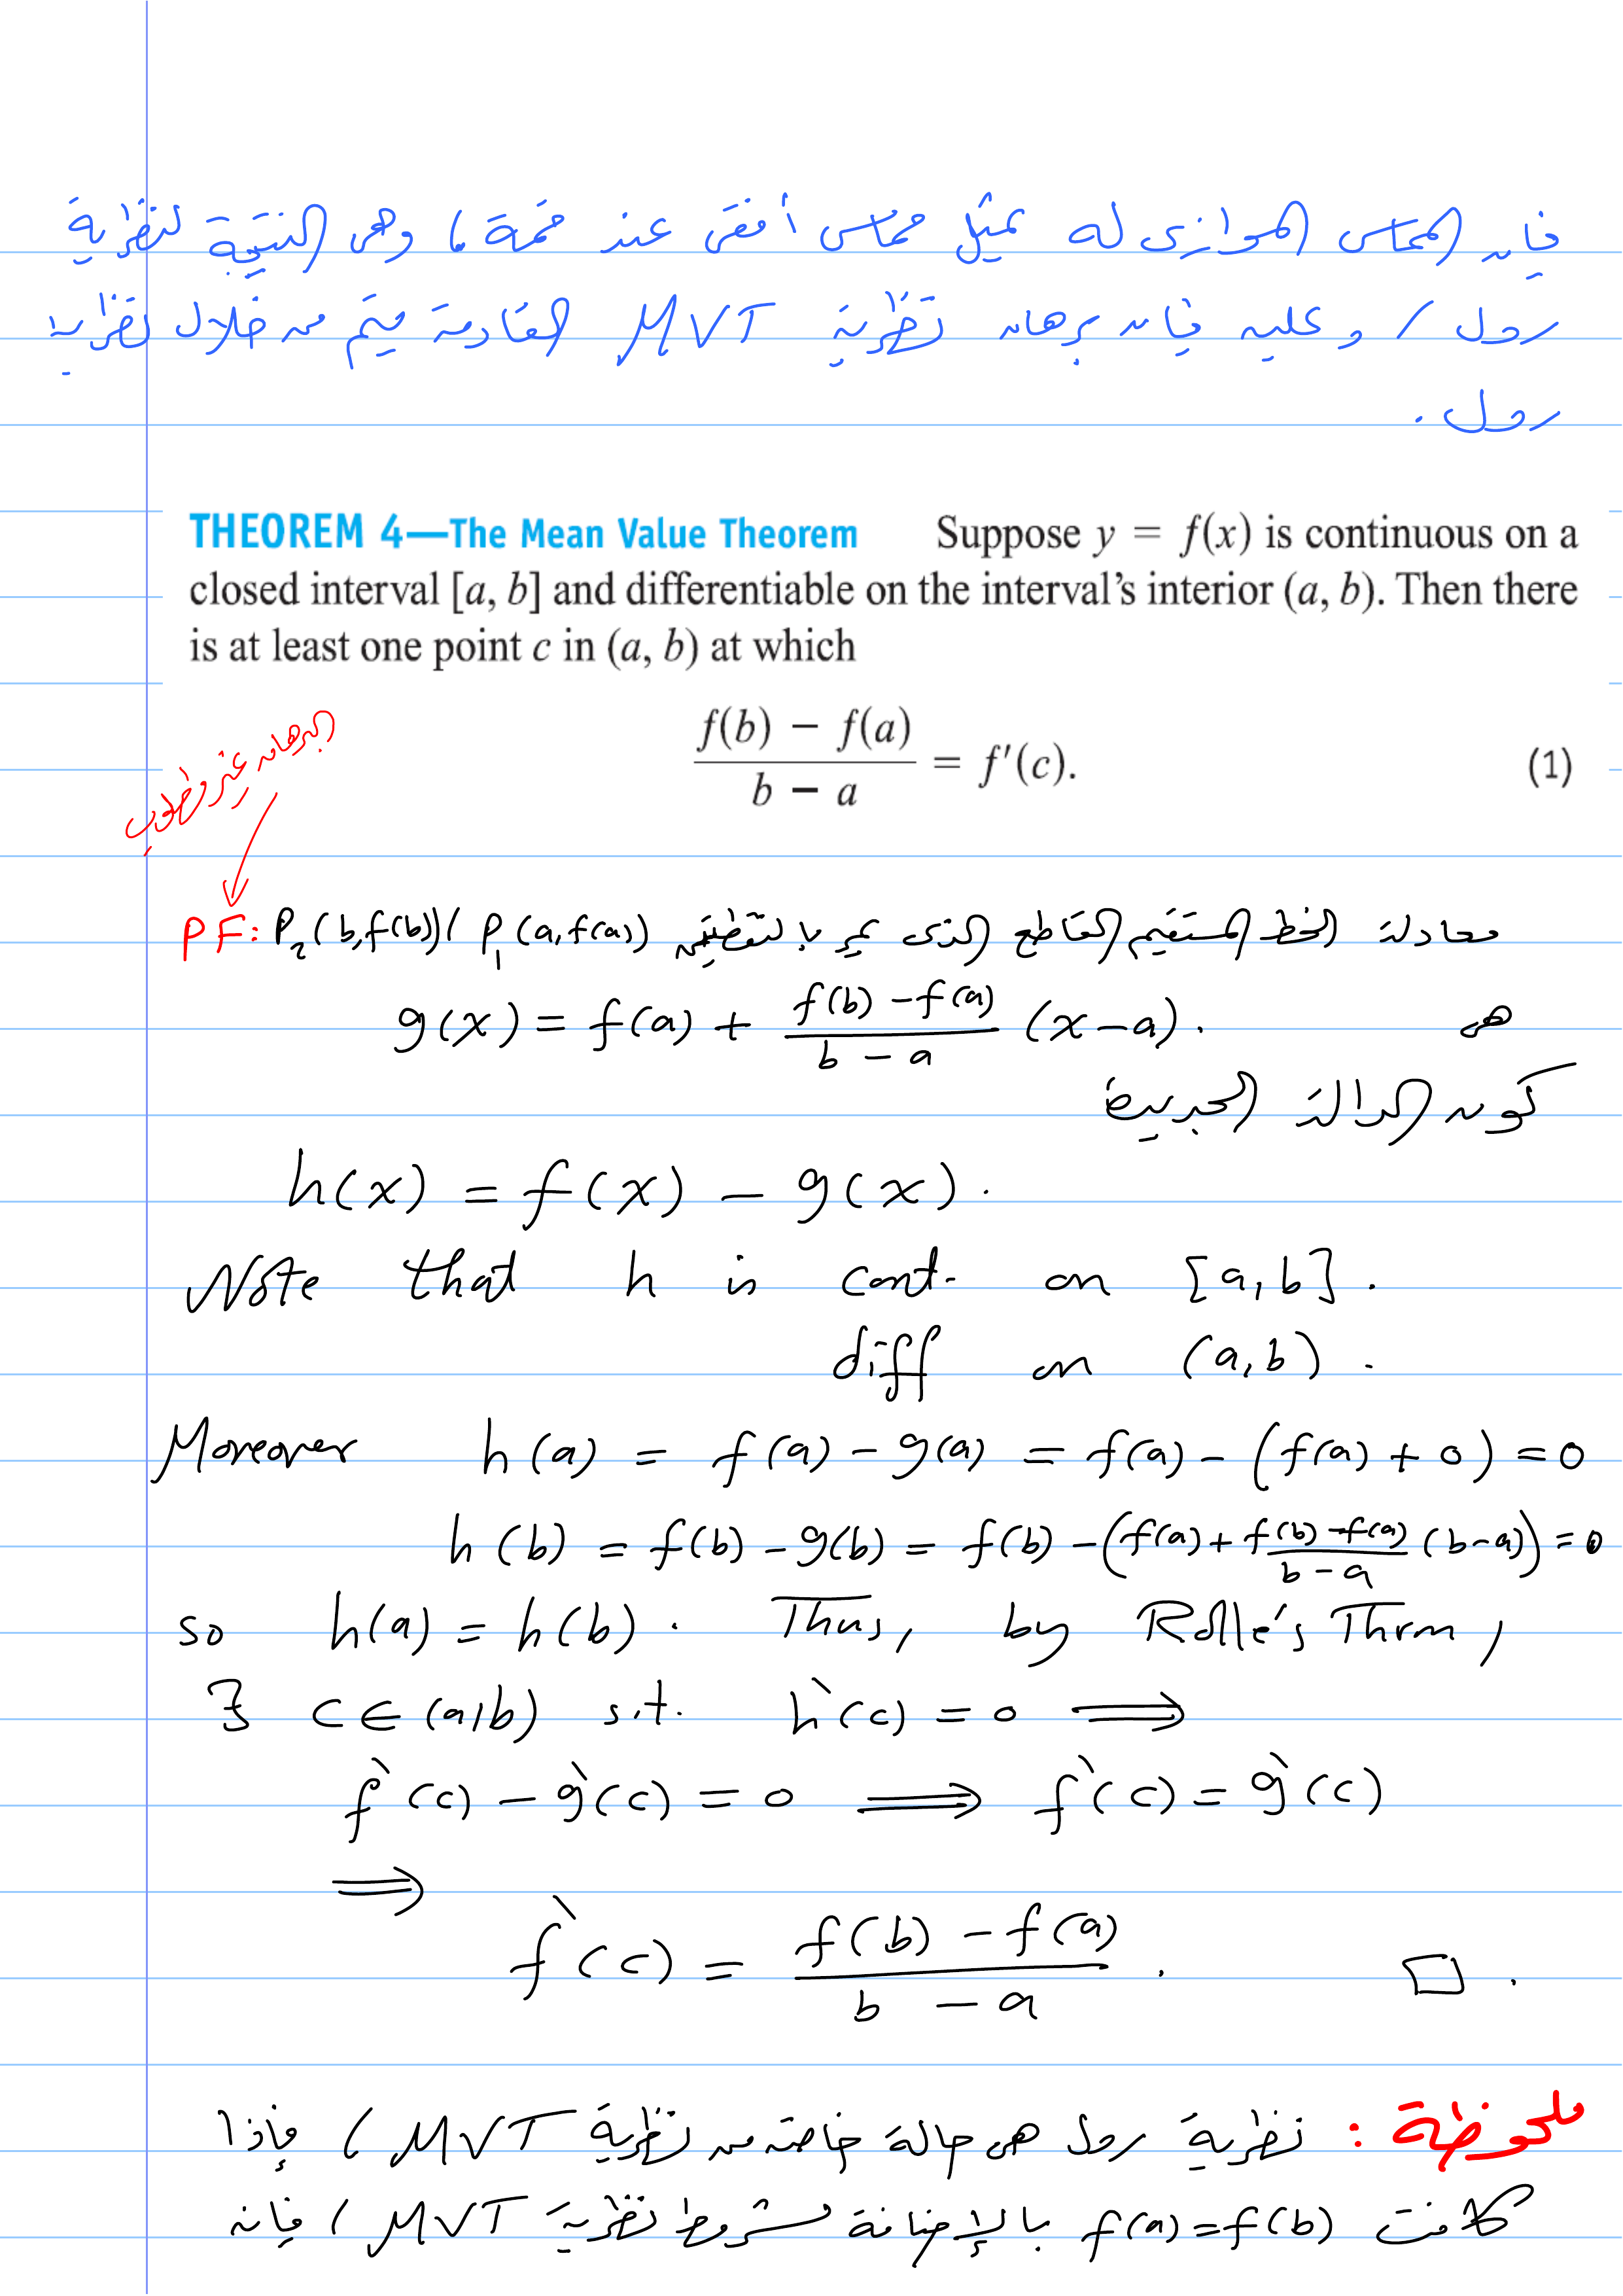 فإن المماس الموازي له يمثل مماس أفقي عند قمة، وهي النتيجة لنظرية
رول، وعليه فإن برهان نظرية MVT القادمة يتم من خلال نظرية
رول.
THEOREM 4—The Mean Value Theorem Suppose y = f(x) is continuous on a
closed interval [a, b] and differentiable on the interval's interior (a, b). Then there
is at least one point c in (a, b) at which
\frac{f(b) − f(a)}{b − a} = f'(c). (1)
البرهان غير مطلوب
PF: معادلة الخط المستقيم القاطع الذي يمر بالنقطتين P₁(a,f(a)) , P₂(b,f(b))
هي g(x) = f(a) + \frac{f(b) − f(a)}{b − a} (x−a).
كون الدالة الجديدة
h(x) = f(x) − g(x).
Note that h is cont. on [a,b].
diff on (a,b).
Moreover h(a) = f(a) − g(a) = f(a) − (f(a) + 0) = 0
h(b) = f(b) − g(b) = f(b) − (f(a) + \frac{f(b) − f(a)}{b − a} (b−a)) = 0
so h(a) = h(b). Thus, by Rolle's Thrm,
∃ c ∈ (a,b) s.t. h'(c) = 0 ⟹
f'(c) − g'(c) = 0 ⟹ f'(c) = g'(c)
⟹
f'(c) = \frac{f(b) − f(a)}{b − a}. □.
ملحوظة: نظرية رول هي حالة خاصة من نظرية MVT، فإذا
كانت f(a)=f(b) بالإضافة لشروط نظرية MVT، فإنه